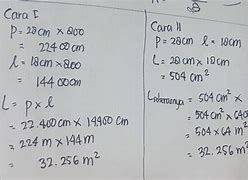 Cara I
P = 28 cm × 800
= 22400 cm
l = 18 cm × 800
= 14400 cm
L = p × l
= 22.400 cm × 14.400 cm
= 224 m × 144 m
= 32.256 m²
Cara II
P = 28 cm l = 18 cm
L = 28 cm × 18 cm
= 504 cm²
= 504 cm² ×
= 504 cm² × 640
= 504 × 64 m²
= 32.256 m²